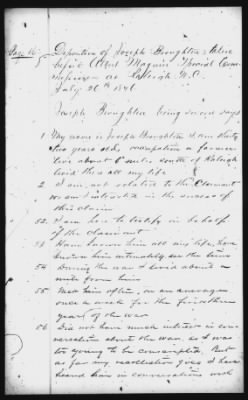 Page 16
Deposition of Joseph Broughton taken
before Albert Magnin Special Com
missioner at Raleigh N.C.
July 26th 1876.
Joseph Broughton being sworn says:
1 My name is Joseph Broughton I am thirty
two years old, occupation a farmer
live about 6 miles south of Raleigh
lived there all my life
2 I am not related to the Claimant
or am interested in the success of
this claim
52. I am here to testify in behalf
of the claimant
53 Have known him all my life, have
known him intimately
54 During the war I lived about a
mile from him
55. Met him often, on an average
once a week for the first three
years of the war
56 Did not have much in con
versation about the war, as I was
too young to be conscripted. But
as far my recollection goes I have
heard him in conversations with